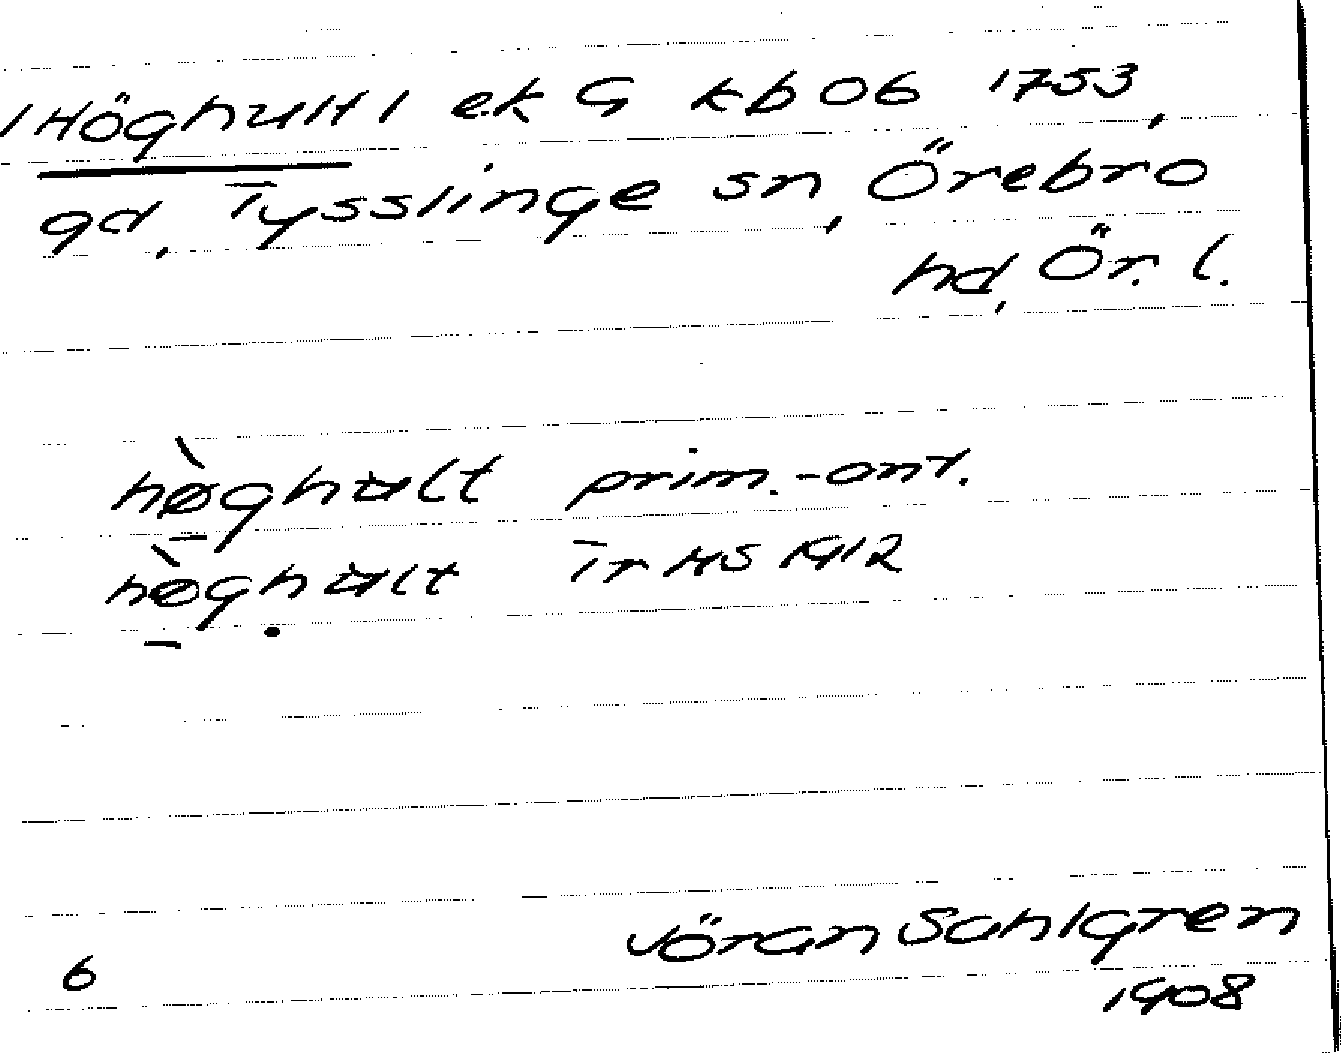 /Höghult/ ek G kb 06 1753,
gd, Tysslinge sn, Örebro
hd, Ör. l.
hø̀ghult prim.-ant.
hø̀ghult Tr HS 1912
Jöran Sahlgren
6
1908